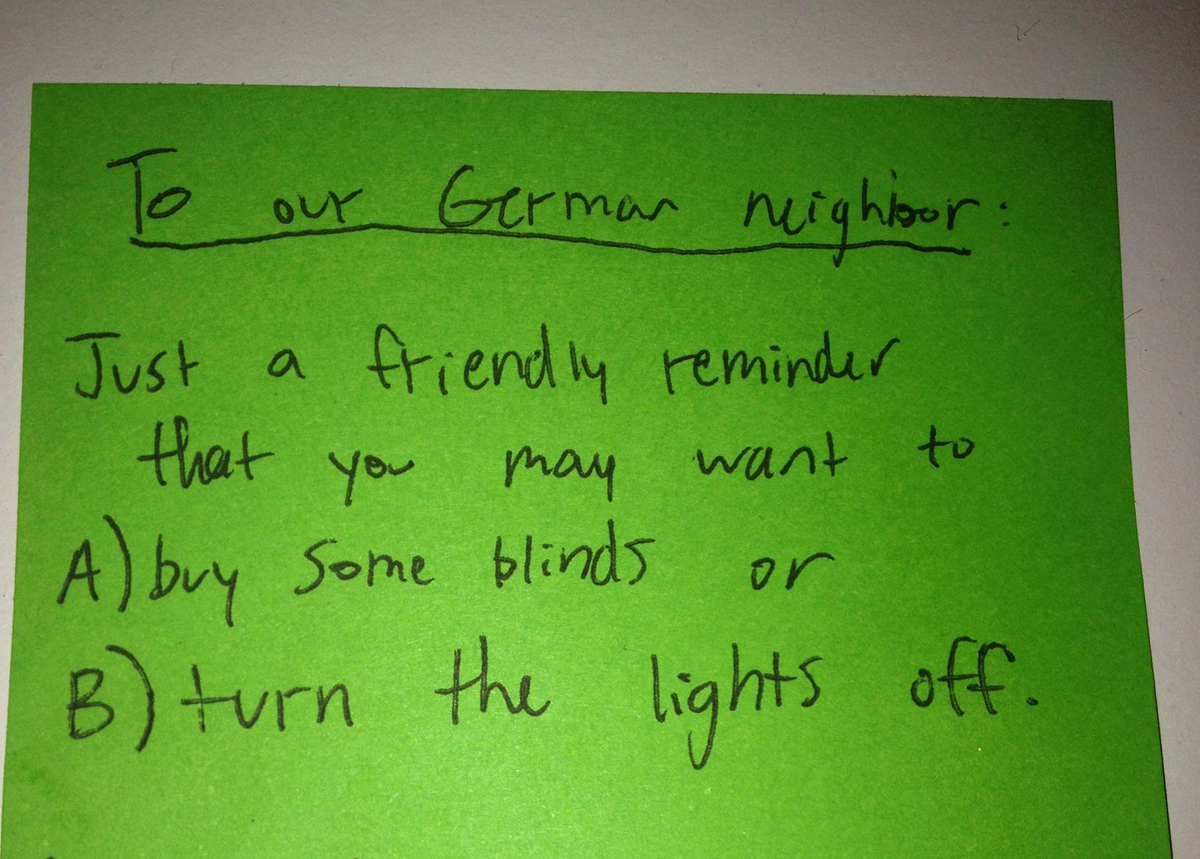 To our German neighbor:
Just a friendly reminder
that you may want to
A) buy some blinds or
B) turn the lights off.